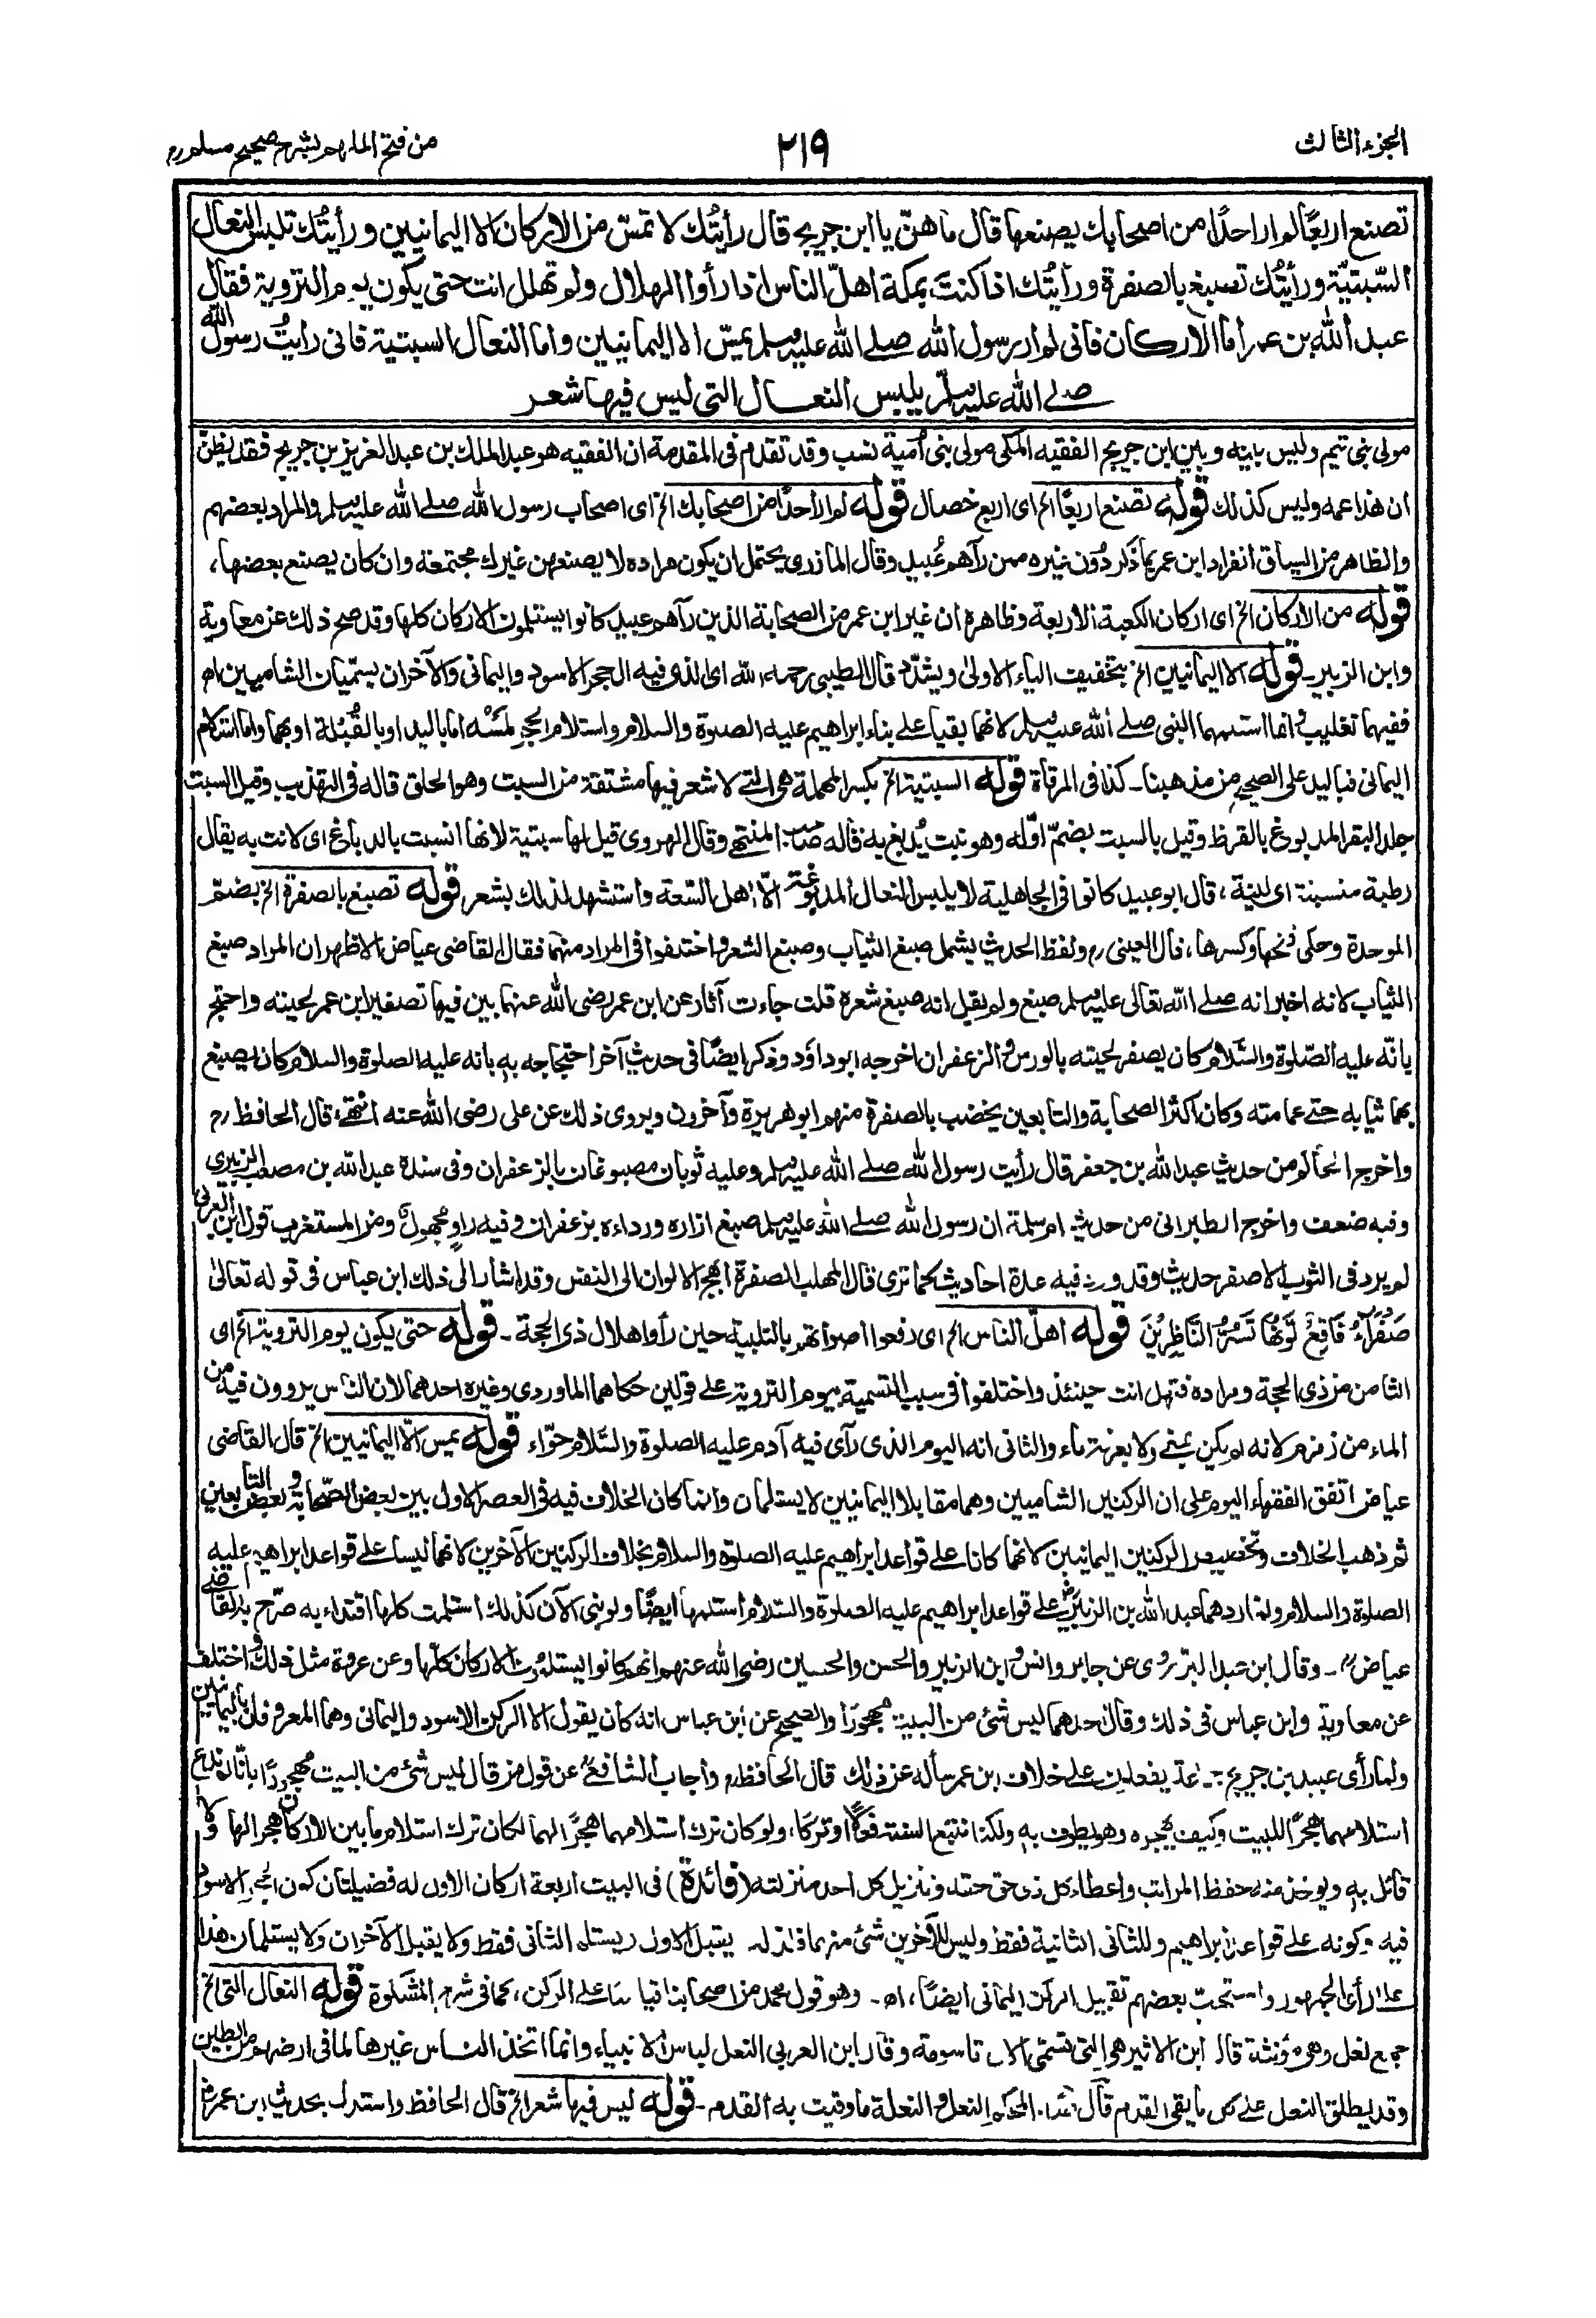 الجزء الثالث
٢١٩
من فتح الملهم بشرح صحيح مسلم رح
تصنع اربعًا لم ار احدًا من اصحابك يصنعها قال ما هنّ يا ابن جريج قال رأيتُك لا تمسّ من الاركان الا اليمانيين ورأيتُك تلبس النعال
السّبتيّة ورأيتُك تصبغ بالصفرة ورأيتُك اذا كنتَ بمكة اهلّ الناس اذا رأوا الهلال ولم تهلل انت حتى يكون يوم التروية فقال
عبد الله بن عمر أما الاركان فانى لم ار رسول الله صلے الله عليه وسلم يمسّ الا اليمانيين واما النعال السبتية فانى رأيتُ رسول الله
صلے الله عليه وسلم يلبس النعال التى ليس فيها شعر
مولى بنى تيم وليس بينه وبين ابن جريج الفقيه المكى مولى بنى أمية نسب وقد تقدم فى المقدمة ان الفقيه هو عبد الملك بن عبد العزيز بن جريج فقد يظن
ان هذا عمه وليس كذلك قوله تصنع اربعًا الخ اى اربع خصال قوله لم ار احدًا من اصحابك الخ اى اصحاب رسول الله صلے الله عليه وسلم والمراد بعضهم
والظاهر من السياق انفراد ابن عمر بما ذكر دون غيره ممن رآهم عُبيد وقال المازرى يحتمل ان يكون مراده لا يصنعهن غيرك مجتمعة وان كان يصنع بعضها،
قوله من الاركان الخ اى اركان الكعبة الاربعة وظاهره ان غير ابن عمر من الصحابة الذين رآهم عبيد كانوا يستلمون الاركان كلها وقد صح ذلك عن معاوية
وابن الزبير۔ قوله الا اليمانيين الخ بتخفيف الياء الاولىٰ ويشدّد قال الطيبى رحمه الله اى الذى فيه الحجر الاسود واليمانى والآخران يسمّيان الشاميين اه
ففيهما تغليب وانما استلمهما النبى صلے الله عليه وسلم لانهما بقيا على بناء ابراهيم عليه الصلوة والسلام واستلام الحجر لمسُه اما باليد او بالقُبلة او بهما واما استلام
اليمانى فباليد على الصحيح من مذهبنا۔ كذا فى المرقاة قوله السبتية الخ بكسر المهملة هى التے لا شعر فيها مشتقة من السبت وهو الحلق قاله فى التهذيب وقيل السبت
جلد البقر المدبوغ بالقرظ وقيل بالسبت بضمّ اوّله وهو نبت يُدبغ به قاله صاحب المنتهے وقال الهروى قيل لها سبتية لانها انسبتت بالدباغ اى لانت به يقال
رطبة منسبتة اى لينة، قال ابو عبيد كانوا فى الجاهلية لا يلبس النعال المدبوغة الّا اهل السّعة واستشهد لذلك بشعر قوله تصبغ بالصفرة الخ بضمّ
الموحدة وحكى فتحها وكسرها، قال العينى رح ولفظ الحديث يشمل صبغ الثياب وصبغ الشعر واختلفوا فى المراد منهما فقال القاضى عياض الاظهر ان المراد صبغ
الثياب لانه اخبر انه صلے الله تعالى عليه وسلم صبغ ولم يقل انه صبغ شعره قلت جاءت آثار عن ابن عمر رضى الله عنهما بين فيها تصفير ابن عمر لحيته واحتج
بانّه عليه الصّلوة والسّلام كان يصفر لحيته بالورس والزعفران اخرجه ابو داؤد وذكر ايضًا فى حديث آخر احتجاجه به بانه عليه الصلوة والسلام كان يصبغ
بهما ثيابه حتے عمامته وكان اكثر الصحابة والتابعين يخضب بالصفرة منهم ابو هريرة وآخرون ويروى ذلك عن على رضى الله عنه انتهے، قال الحافظ رح
واخرج الحاكم من حديث عبد الله بن جعفر قال رأيت رسول الله صلے الله عليه وسلم وعليه ثوبان مصبوغان بالزعفران وفى سنده عبد الله بن مصعب الزبيرى
وفيه ضعف واخرج الطبرانى من حديث ام سلمة ان رسول الله صلے الله عليه وسلم صبغ ازاره ورداءه بزعفران وفيه راوٍ مجهول ومن المستغرب قول ابن العربى
لم يرد فى الثوب الاصفر حديث وقد ورد فيه عدة احاديث كما ترى قال المهلب الصفرة ابهج الالوان الى النفس وقد اشار الى ذلك ابن عباس فى قوله تعالىٰ
صَفْرَآءُ فَاقِعٌ لَّوْنُهَا تَسُرُّ النَّاظِرِيْنَ قوله اهلّ الناس الخ اى رفعوا اصواتهم بالتلبية حين رأوا هلال ذى الحجة۔ قوله حتى يكون يوم التروية الخ اى
الثامن من ذى الحجة ومراده فتهل انت حينئذ واختلفوا فى سبب التسمية بيوم التروية على قولين حكاهما الماوردى وغيره احدهما لان الناس يروون فيه من
الماء من زمزم لانه لم يكن بمنى ولا بعرفة ماء والثانى انه اليوم الذى رآى فيه آدم عليه الصلوة والسّلام حوّاء قوله يمس الّا اليمانيين الخ قال القاضى
عياض اتفق الفقهاء اليوم على ان الركنين الشاميين وهما مقابلا اليمانيين لا يستلمان وانما كان الخلاف فيه فى العصر الاول بين بعض الصّحابة وبعض التابعين
ثم ذهب الخلاف وتخصيص الركنين اليمانيين لانهما كانا على قواعد ابراهيم عليه الصلوة والسلام بخلاف الركنين الآخرين لانهما ليسا على قواعد ابراهيم عليه
الصلوة والسلام ولما ردهما عبد الله بن الزبير على قواعد ابراهيم عليه الصلوة والسلام استلمها ايضًا ولو بنى الآن كذلك استلمت كلها اقتداء به صرّح به القاضى
عياض رح ۔ وقال ابن عبد البر روى عن جابر وانس وابن الزبير والحسن والحسين رضى الله عنهم انهم كانوا يستلمون الاركان كلّها وعن عروة مثل ذلك واختلف
عن معاوية وابن عباس فى ذلك وقال احدهما ليس شئ من البيت مهجورًا والصحيح عن ابن عباس انه كان يقول الا الركن الاسود واليمانى وهما المعروفان باليمانيين
ولما رأى عبيد بن جريج يفعلون على خلاف ابن عمر سأله عن ذلك قال الحافظ رح وأجاب الشافعى عن قول من قال ليس شئ من البيت مهجورًا بانّا لم ندع
استلامهما هجرًا للبيت وكيف يهجره وهو يطوف به ولكنا نتبع السنة فعلًا او تركًا، ولو كان ترك استلامهما هجرًا لهما لكان ترك استلام ما بين الاركان هجرا لها ولا
قائل به ويوخذ منه حفظ المراتب واعطاء كل ذى حق حقه وتنزيل كل احد منزلته (فائدة) فى البيت اربعة اركان الاول له فضيلتان كون الحجر الاسود
فيه وكونه على قواعد ابراهيم وللثانى الثانية فقط وليس للآخرين شئ منهما فلذلك يقبل الاول ويستلم الثانى فقط ولا يقبل الآخران ولا يستلمان هذا
على رأى الجمهور واستحبّ بعضهم تقبيل الركن اليمانى ايضًا، اه۔ وهو قول محمد من اصحابنا قياسا على الركن، كما فى شرح المشكوة قوله النعال التى الخ
جمع نعل وهى مؤنثة قال ابن الاثير هى التى تسمّى الآن تاسومة وقال ابن العربى النعل لباس الانبياء وانما اتخذ الناس غيرها لما فى ارضهم من الطين
وقد يطلق النعل على كل ما يقى القدم قال المحكم النعل والنعلة ما وقيت به القدم۔ قوله ليس فيها شعر الخ قال الحافظ واستدل بحديث ابن عمر